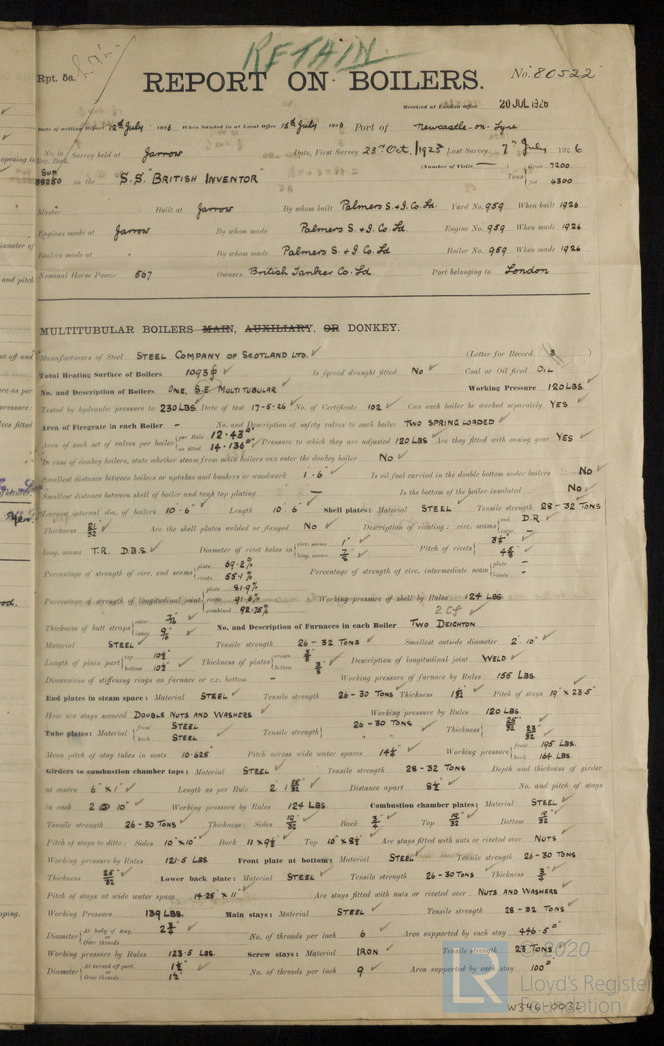 RETAIN
Rpt. 5a.
REPORT ON BOILERS.
No. 80522
Received at London Office 20 JUL 1926
Date of writing Report 12th July 1926 When handed in at Local Office 15th July 1926 Port of Newcastle-on-Tyne
No. in Reg. Book. Survey held at Jarrow Date, First Survey 23rd Oct. 1925 Last Survey 7th July 1926
(Number of Visits —)
on the S.S. "BRITISH INVENTOR" Tons Gross 7200 Net 4300
Master Built at Jarrow By whom built Palmers S. & I. Co. Ld. Yard No. 959 When built 1926
Engines made at Jarrow By whom made Palmers S. & I. Co. Ld. Engine No. 959 When made 1926
Boilers made at " By whom made Palmers S. & I. Co. Ld. Boiler No. 959 When made 1926
Nominal Horse Power 567 Owners British Tanker Co. Ld. Port belonging to London
MULTITUBULAR BOILERS MAIN, AUXILIARY, OR DONKEY.
Manufacturers of Steel STEEL COMPANY OF SCOTLAND LTD. (Letter for Record S)
Total Heating Surface of Boilers 1093 Is forced draught fitted No Coal or Oil fired OIL
No. and Description of Boilers ONE, S.E. MULTITUBULAR Working Pressure 120 LBS
Tested by hydraulic pressure to 230 LBS. Date of test 17-5-26 No. of Certificate 102 Can each boiler be worked separately YES
Area of Firegrate in each Boiler - No. and Description of safety valves to each boiler TWO SPRING LOADED
Area of each set of valves per boiler per Rule 12.43 as fitted 14.136 Pressure to which they are adjusted 120 LBS Are they fitted with easing gear YES
In case of donkey boilers, state whether steam from main boilers can enter the donkey boiler No
Smallest distance between boilers or uptakes and bunkers or woodwork 1'. 6" Is oil fuel carried in the double bottom under boilers No
Smallest distance between shell of boiler and tank top plating — Is the bottom of the boiler insulated No
Largest internal dia. of boilers 10'. 6" Length 10'. 6" Shell plates: Material STEEL Tensile strength 28-32 TONS
Thickness 21/32 Are the shell plates welded or flanged No Description of riveting: circ. seams end D.R. inter. -
long. seams T.R. D.B.S. Diameter of rivet holes in circ. seams 1" long. seams 7/8" Pitch of rivets
Percentage of strength of circ. end seams plate 69.2% rivets 55.1% Percentage of strength of circ. intermediate seam plate - rivets -
Percentage of strength of longitudinal joint plate 81.9% rivets 91.6% combined 92.75% Working pressure of shell by Rules 124 LBS
Thickness of butt straps outer inner 9/16 No. and Description of Furnaces in each Boiler TWO DEIGHTON
Material STEEL Tensile strength 26-32 TONS Smallest outside diameter 2'. 10"
Length of plain part top 10½" bottom 10½" Thickness of plates crown 3/8 bottom 3/8 Description of longitudinal joint WELD
Dimensions of stiffening rings on furnace or c.c. bottom - Working pressure of furnace by Rules 155 LBS
End plates in steam space: Material STEEL Tensile strength 26-30 TONS Thickness Pitch of stays 19" x 23.5"
How are stays secured DOUBLE NUTS AND WASHERS Working pressure by Rules 120 LBS.
Tube plates: Material front STEEL back STEEL Tensile strength 26-30 TONS " " Thickness 25/32 23/32
Mean pitch of stay tubes in nests 10.625" Pitch across wide water spaces 14½" Working pressure front 195 LBS. back 164 LBS.
Girders to combustion chamber tops: Material STEEL Tensile strength 28-32 TONS Depth and thickness of girder
at centre 6" x 1" Length as per Rule 2'. 1 25/32" Distance apart 8½" No. and pitch of stays
in each 2 @ 10" Working pressure by Rules 124 LBS Combustion chamber plates: Material STEEL
Tensile strength 26-30 TONS Thickness: Sides 19/32 Back 3/4 Top 19/32 Bottom 19/32
Pitch of stays to ditto: Sides 10" x 10" Back 11 x 9½" Top 10" x 8½" Are stays fitted with nuts or riveted over NUTS
Working pressure by Rules 121.5 LBS Front plate at bottom: Material STEEL Tensile strength 26-30 TONS
Thickness 25/32 Lower back plate: Material STEEL Tensile strength 26-30 TONS Thickness 3/4
Pitch of stays at wide water space 14.25" x 11" Are stays fitted with nuts or riveted over NUTS AND WASHERS
Working Pressure 139 LBS. Main stays: Material STEEL Tensile strength 28-32 TONS
Diameter At body of stay, or Over threads 2¾" No. of threads per inch 6 Area supported by each stay 446.5
Working pressure by Rules 123.5 LBS Screw stays: Material IRON Tensile strength 23 TONS
Diameter At turned off part, or Over threads 1½" No. of threads per inch 9 Area supported by each stay 100
© 2020
Lloyd's Register
Foundation
LR
W346-0032